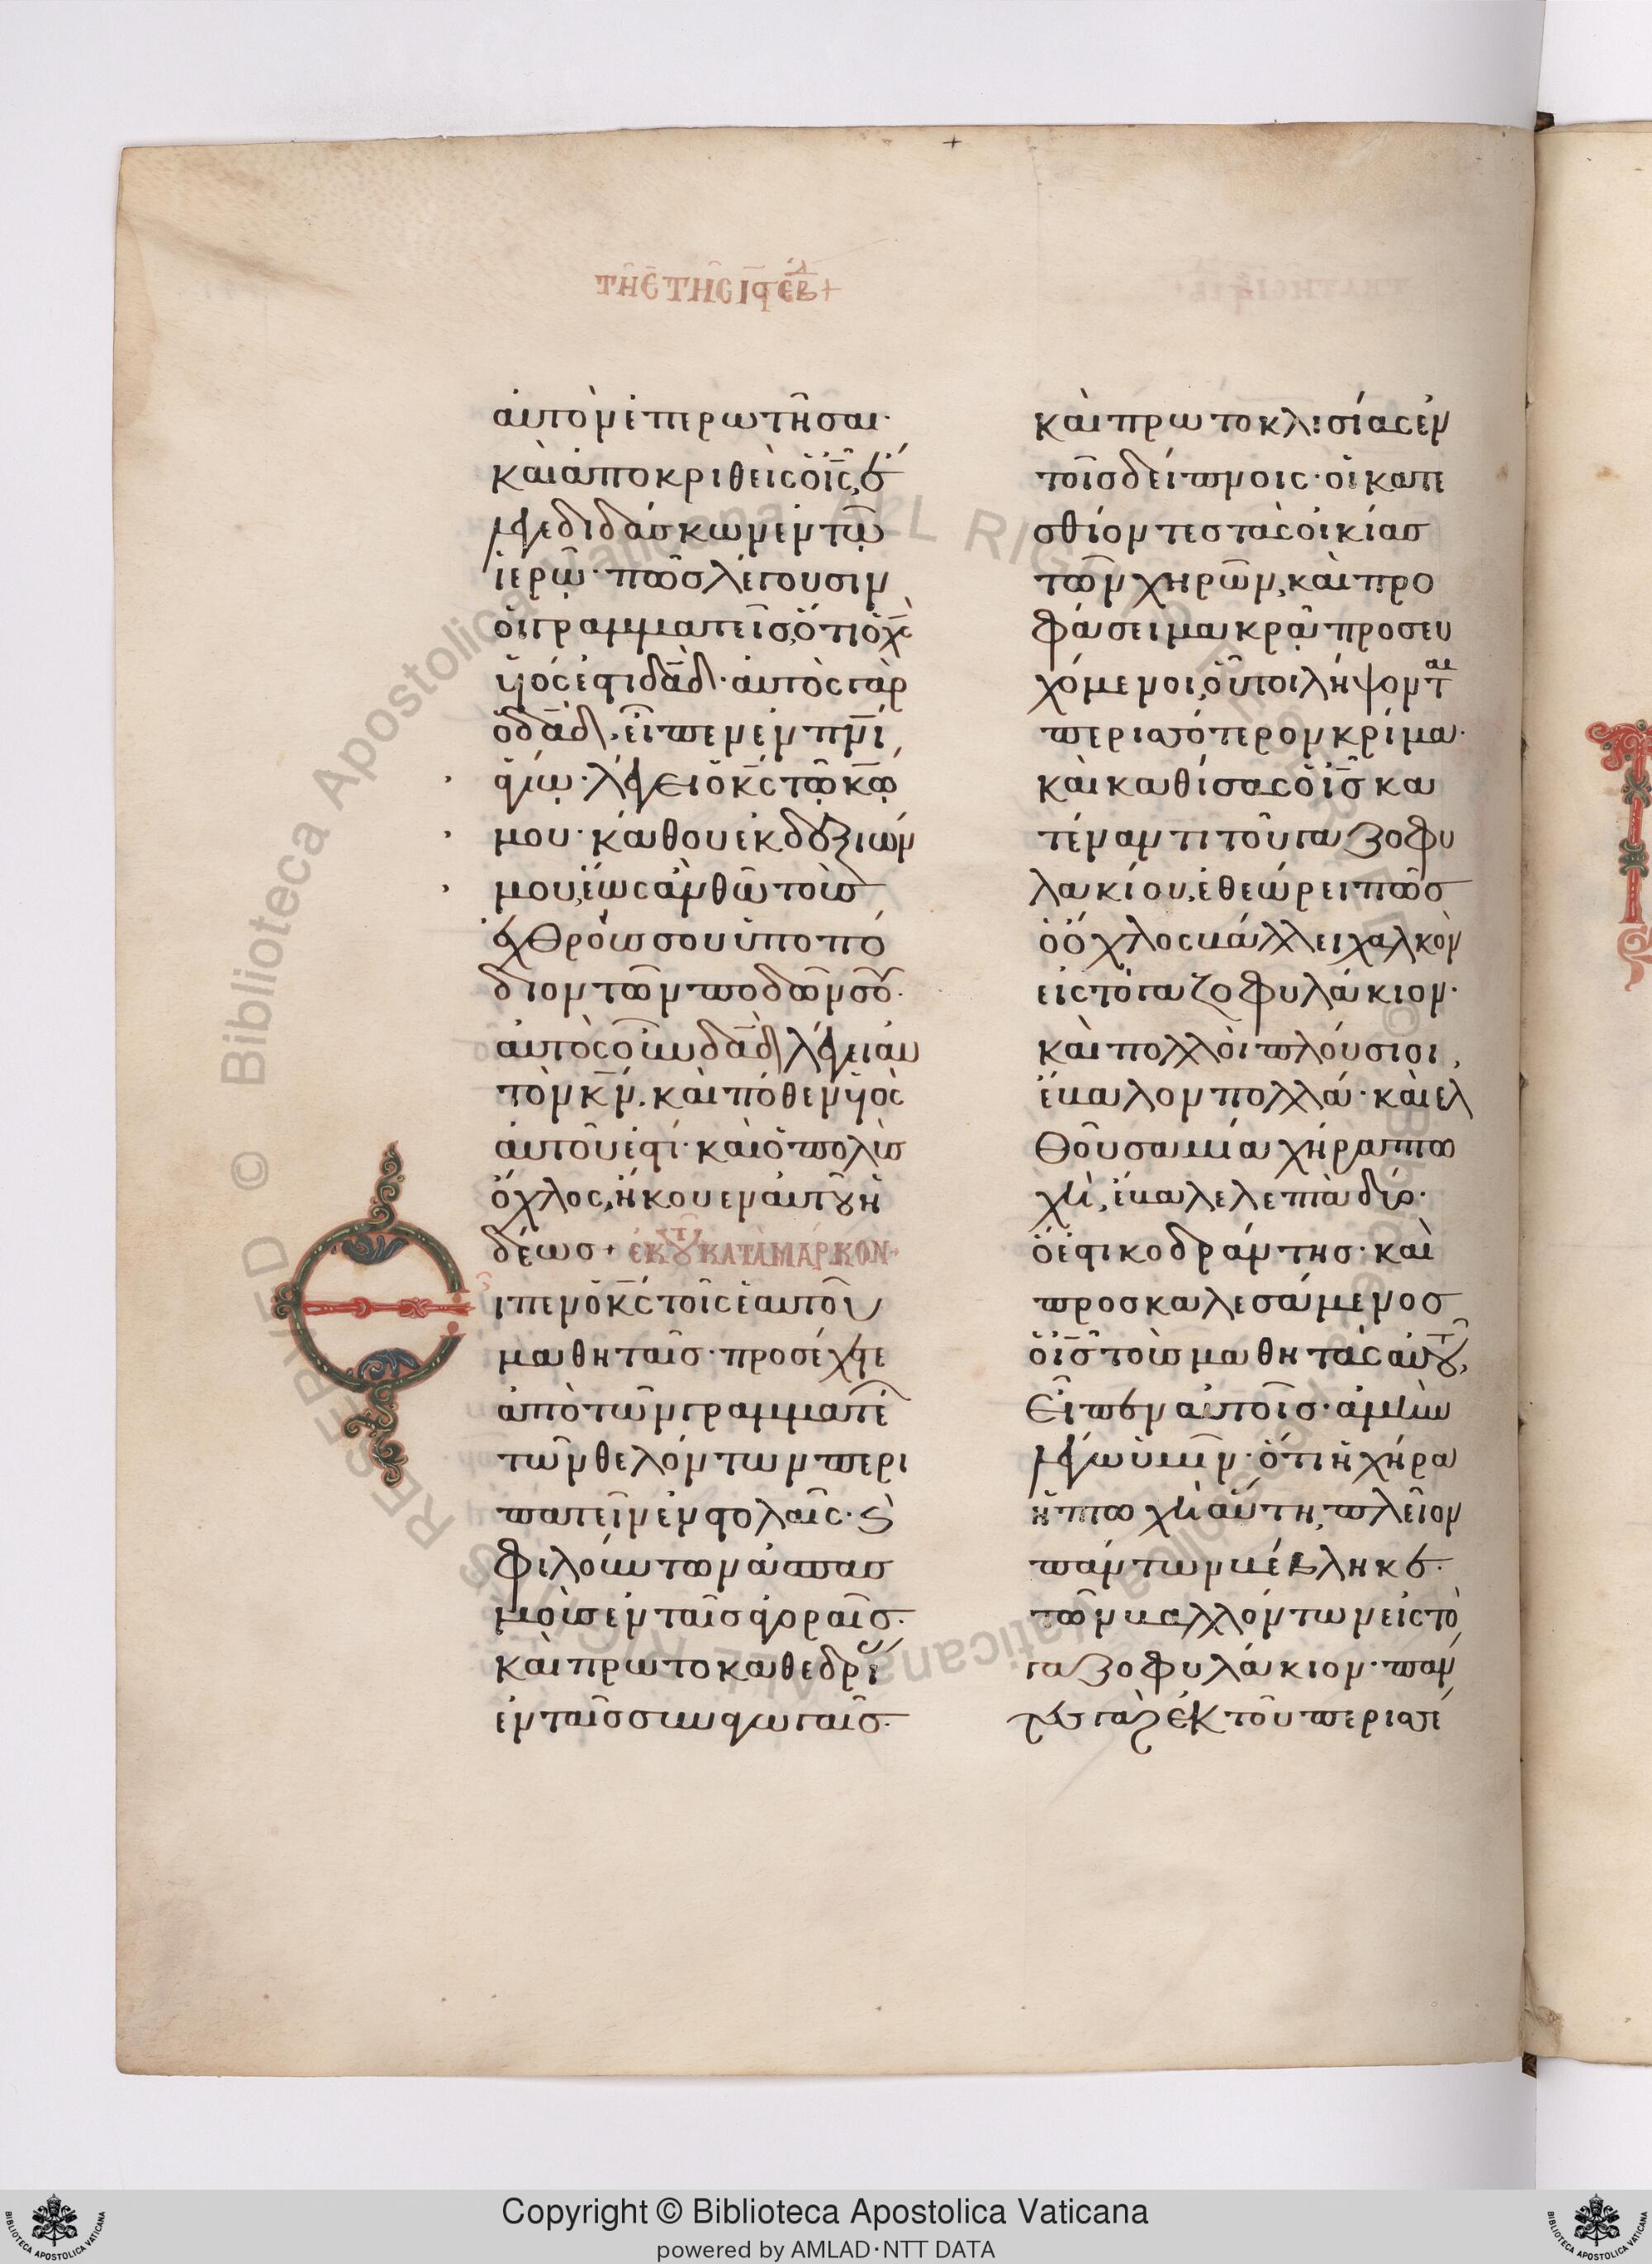 τῆ ε̄ τῆς ις̄ ἑβδ +
αὐτὸν ἐπερωτῆσαι·
καὶ ἀποκριθεὶς ὁ ῑς̄, ἔ
λεγε διδάσκων ἐν τῶ
ἱερῶ· πῶς λέγουσιν
οἱ γραμματεῖς, ὅτι ὁ χ̄ς̄
υἱός ἐστι δ̄ᾱδ̄· αὐτὸς γὰρ
ὁ δ̄ᾱδ̄, εἶπεν ἐν π̄ν̄ῑ
ἁγίω· λέγει ὁ κ̄ς̄ τῶ κ̄ω̄
μου· κάθου ἐκ δεξιῶν
μου, ἕως ἂν θῶ τοὺς
ἐχθρούς σου ὑποπό
διον τῶν ποδῶν σου·
αὐτὸς οὖν δ̄ᾱδ̄ λέγει αὐ
τὸν κ̄ν̄. καὶ πόθεν υἱὸς
αὐτοῦ ἐστι· καὶ ὁ πολὺς
ὄχλος, ἤκουεν αὐτοῦ ἡ
δέως + ἐκ τοῦ κατὰ μάρκον·
Εἶπεν ὁ κ̄ς̄ τοῖς ἑαυτοῦ
μαθηταῖς· προσέχετε
ἀπὸ τῶν γραμματέ
τῶν θελόντων περι
πατεῖν ἐν στολαῖς· καὶ
φιλούντων ἀσπασ
μοὺς ἐν ταῖς ἀγοραῖς·
καὶ πρωτοκαθεδρί
ἐν ταῖς συναγωγαῖς·
καὶ πρωτοκλισίας ἐν
τοῖς δείπνοις· οἱ κατε
σθίοντες τὰς οἰκίας
τῶν χηρῶν, καὶ προ
φάσει μακρᾶ προσευ
χόμενοι, οὗτοι λήψονται
περισσότερον κρίμα·
καὶ καθίσας ὁ ῑς̄ κα
τέναντι τοῦ γαζοφυ
λακίου, ἐθεώρει πῶς
ὁ ὄχλος βάλλει χαλκὸν
εἰς τὸ γαζοφυλάκιον·
καὶ πολλοὶ πλούσιοι,
ἔβαλον πολλά· καὶ ἐλ
θοῦσα μία χήρα πτω
χὴ, ἔβαλε λεπτὰ δύο·
ὅ ἐστι κοδράντης· καὶ
προσκαλεσάμενος
ὁ ῑς̄ τοὺς μαθητὰς αὐτοῦ,
Εἶπεν αὐτοῖς· ἀμὴν
λέγω ὑμῖν· ὅτι ἡ χήρα
ἡ πτωχὴ αὕτη, πλεῖον
πάντων βέβληκε·
τῶν βαλλόντων εἰς τὸ
γαζοφυλάκιον· πάν
τες γὰρ ἐκ τοῦ περισσεύ
Copyright © Biblioteca Apostolica Vaticana
powered by AMLAD·NTT DATA